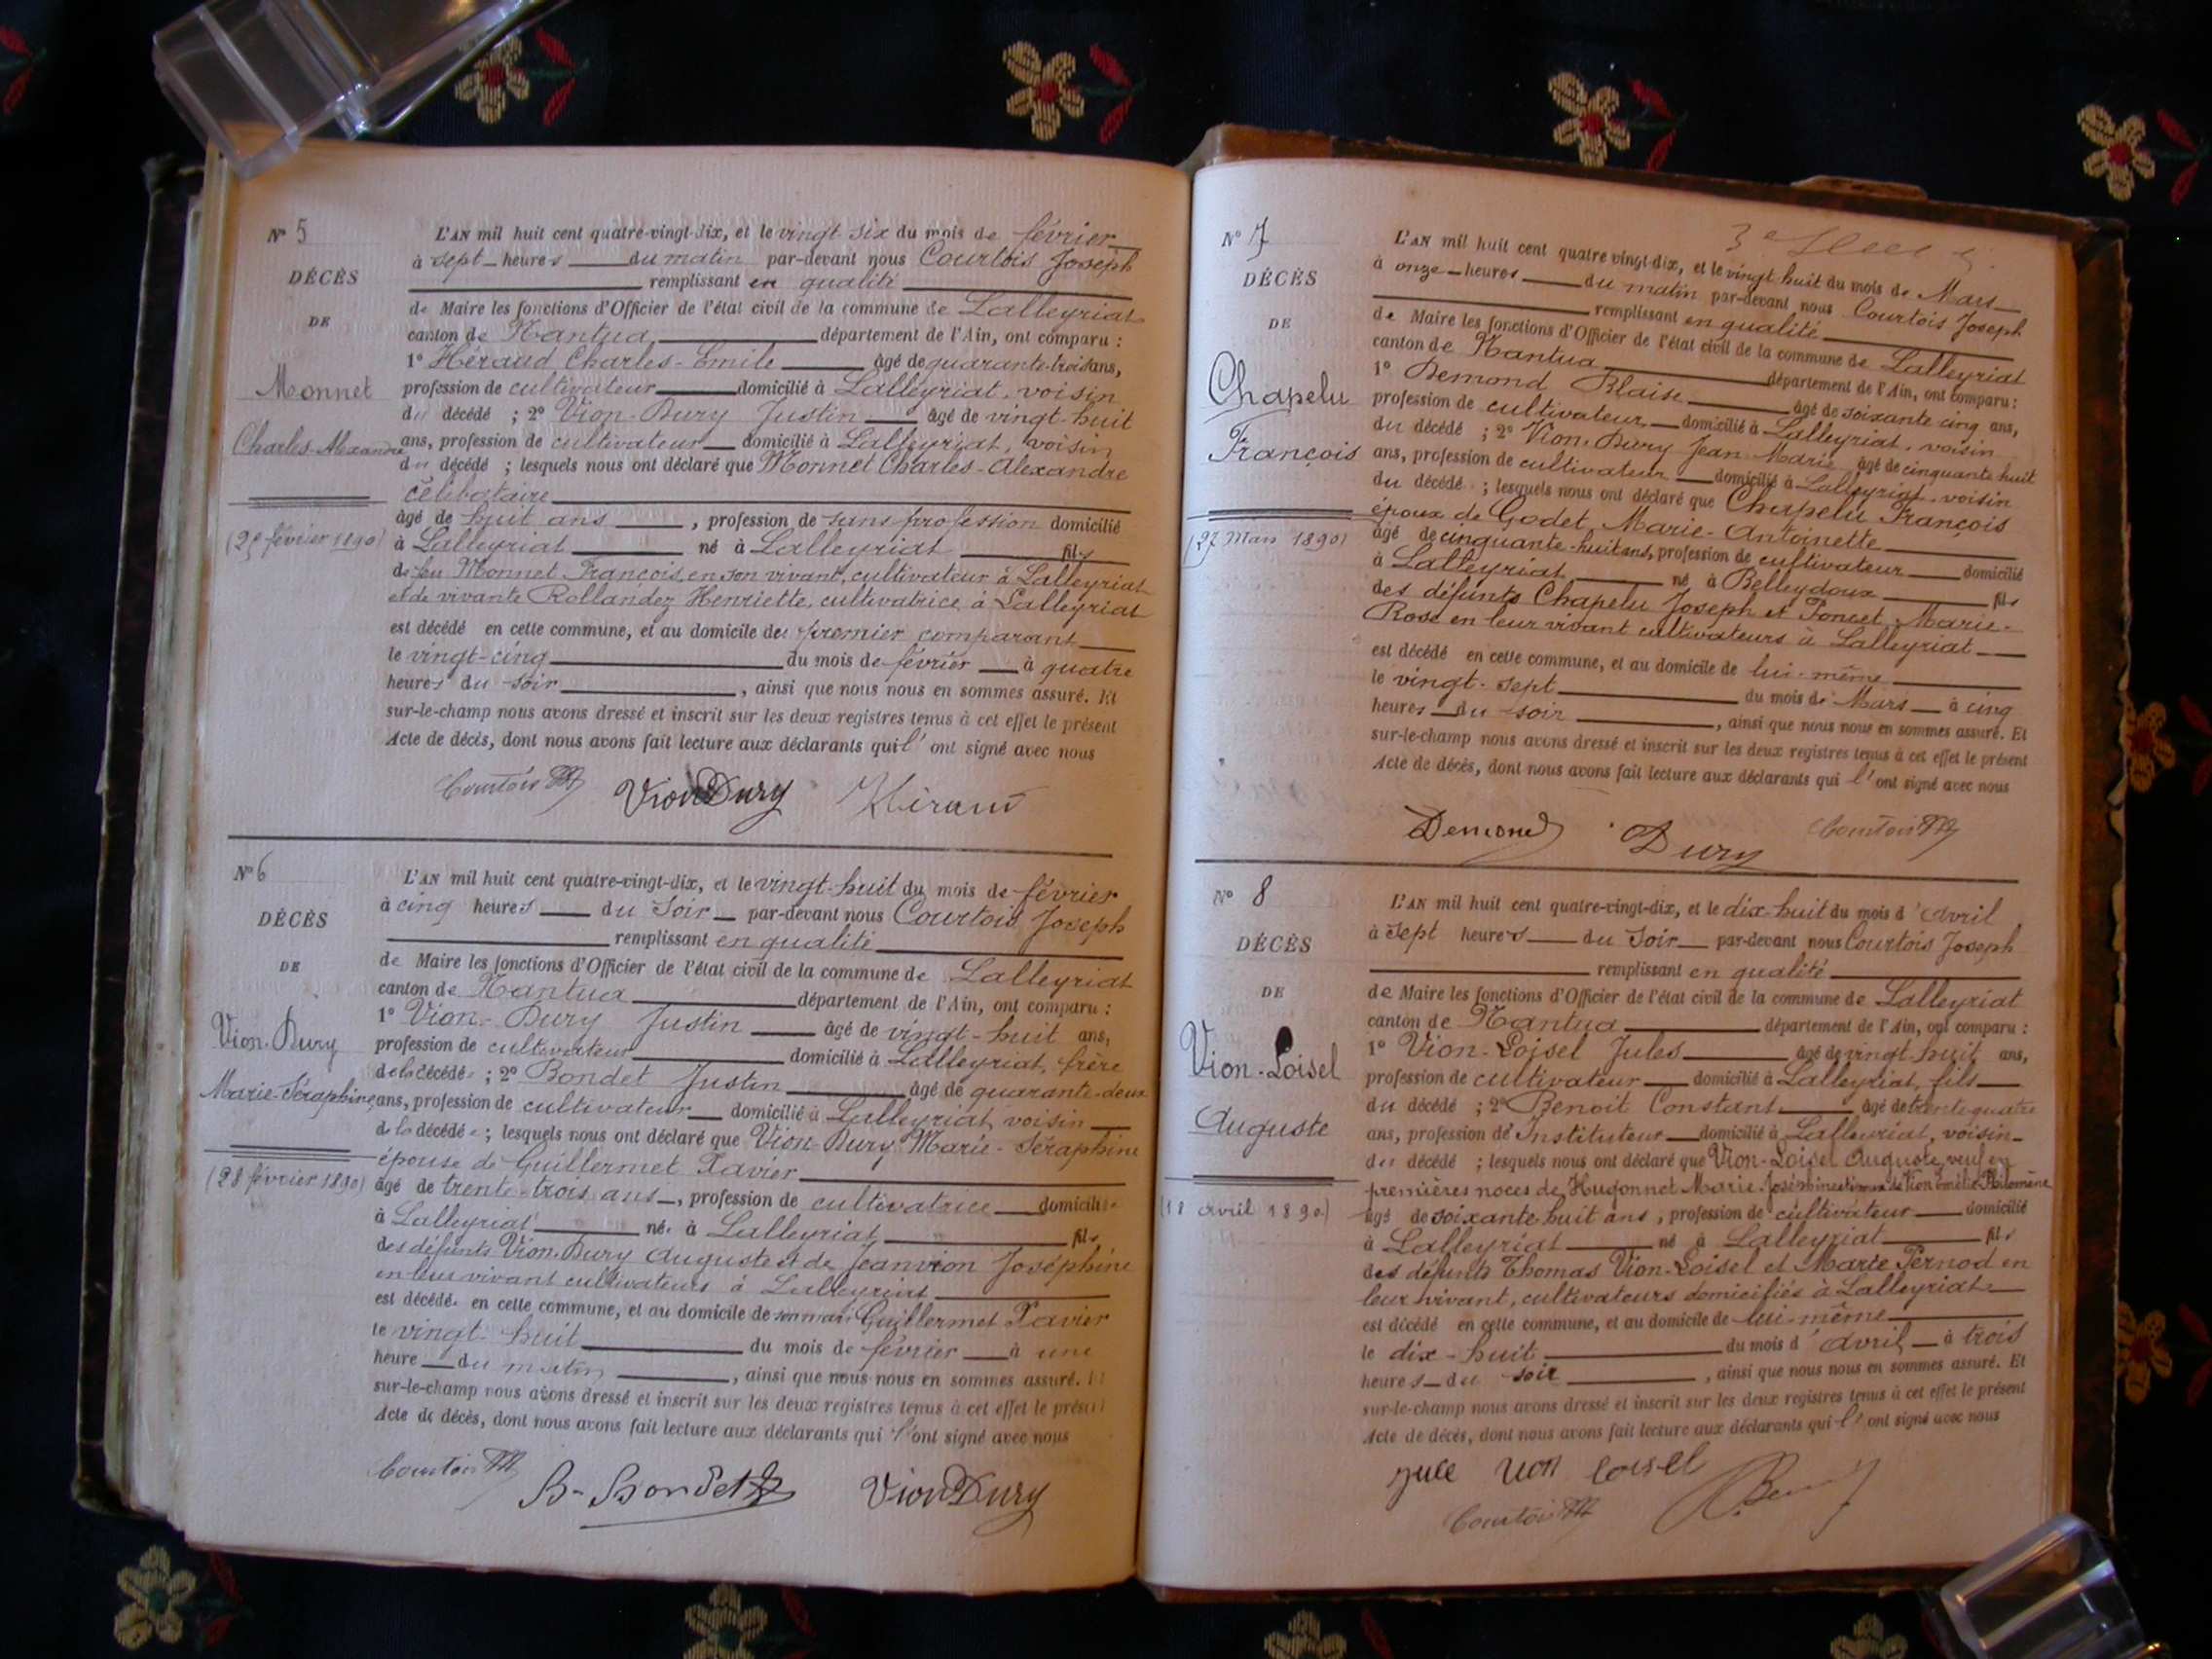 N° 5
DÉCÈS
DE
Monnet
Charles-Alexandre
(25 février 1890)
L'AN mil huit cent quatre-vingt-dix, et le vingt six du mois de février
à sept heures du matin par-devant nous Courtois Joseph
remplissant en qualité
de Maire les fonctions d'Officier de l'état civil de la commune de Lalleyriat
canton de Nantua département de l'Ain, ont comparu :
1° Héraud Charles-Emile âgé de quarante-trois ans,
profession de cultivateur domicilié à Lalleyriat, voisin
du décédé ; 2° Vion-Dury Justin âgé de vingt-huit
ans, profession de cultivateur domicilié à Lalleyriat, voisin
du décédé ; lesquels nous ont déclaré que Monnet Charles-Alexandre
célibataire
âgé de huit ans , profession de sans profession domicilié
à Lalleyriat né à Lalleyriat fils
de feu Monnet François, en son vivant, cultivateur à Lalleyriat
et de vivante Rollandez Henriette, cultivatrice à Lalleyriat
est décédé en cette commune, et au domicile de premier comparant
le vingt-cinq du mois de février à quatre
heures du soir , ainsi que nous nous en sommes assuré. Et
sur-le-champ nous avons dressé et inscrit sur les deux registres tenus à cet effet le présent
Acte de décès, dont nous avons fait lecture aux déclarants qui l' ont signé avec nous
Courtois VionDury Héraud
N° 6
DÉCÈS
DE
Vion-Dury
Marie-Séraphine
(28 février 1890)
L'AN mil huit cent quatre-vingt-dix, et le vingt-huit du mois de février
à cinq heures du soir par-devant nous Courtois Joseph
remplissant en qualité
de Maire les fonctions d'Officier de l'état civil de la commune de Lalleyriat
canton de Nantua département de l'Ain, ont comparu :
1° Vion-Dury Justin âgé de vingt-huit ans,
profession de cultivateur domicilié à Lalleyriat, frère
de la décédée ; 2° Bondet Justin âgé de quarante-deux
ans, profession de cultivateur domicilié à Lalleyriat, voisin
de la décédée ; lesquels nous ont déclaré que Vion-Dury Marie-Séraphine
épouse de Guillermet Xavier
âgé de trente-trois ans , profession de cultivatrice domicilié
à Lalleyriat née à Lalleyriat fils
des défunts Vion-Dury Auguste et de Jeanvion Joséphine
en leur vivant cultivateurs à Lalleyriat
est décédé en cette commune, et au domicile de son mari Guillermet Xavier
le vingt-huit du mois de février à une
heure du matin , ainsi que nous nous en sommes assuré. Et
sur-le-champ nous avons dressé et inscrit sur les deux registres tenus à cet effet le présent
Acte de décès, dont nous avons fait lecture aux déclarants qui l'ont signé avec nous
Courtois B-Bondet VionDury
N° 7
DÉCÈS
DE
Chapelu
François
(27 Mars 1890)
L'AN mil huit cent quatre vingt-dix, et le vingt huit du mois de Mars
à onze heures du matin par-devant nous Courtois Joseph
remplissant en qualité
de Maire les fonctions d'Officier de l'état civil de la commune de Lalleyriat
canton de Nantua département de l'Ain, ont comparu :
1° Demond Blaise âgé de soixante cinq ans,
profession de cultivateur domicilié à Lalleyriat, voisin
du décédé ; 2° Vion-Dury Jean Marie âgé de cinquante huit
ans, profession de cultivateur domicilié à Lalleyriat, voisin
du décédé ; lesquels nous ont déclaré que Chapelu François
époux de Godet Marie-Antoinette
âgé de cinquante-huit ans, profession de cultivateur domicilié
à Lalleyriat né à Belleydoux fils
des défunts Chapelu Joseph et Poncet Marie-
Rose en leur vivant cultivateurs à Lalleyriat
est décédé en cette commune, et au domicile de lui-même
le vingt-sept du mois de Mars à cinq
heures du soir , ainsi que nous nous en sommes assuré. Et
sur-le-champ nous avons dressé et inscrit sur les deux registres tenus à cet effet le présent
Acte de décès, dont nous avons fait lecture aux déclarants qui l' ont signé avec nous
Demond Dury Courtois
N° 8
DÉCÈS
DE
Vion-Loisel
Auguste
(18 avril 1890)
L'AN mil huit cent quatre-vingt-dix, et le dix-huit du mois d'avril
à sept heures du soir par-devant nous Courtois Joseph
remplissant en qualité
de Maire les fonctions d'Officier de l'état civil de la commune de Lalleyriat
canton de Nantua département de l'Ain, ont comparu :
1° Vion-Loisel Jules âgé de vingt-huit ans,
profession de cultivateur domicilié à Lalleyriat, fils
du décédé ; 2° Benoit Constant âgé de trente-quatre
ans, profession de Instituteur domicilié à Lalleyriat, voisin
du décédé ; lesquels nous ont déclaré que Vion-Loisel Auguste, veuf en
premières noces de Hugonnet Marie Joséphine de Vion Philomène
âgé de soixante huit ans , profession de cultivateur domicilié
à Lalleyriat né à Lalleyriat fils
des défunts Thomas Vion-Loisel et Marie Pernod en
leur vivant, cultivateurs domiciliés à Lalleyriat
est décédé en cette commune, et au domicile de lui-même
le dix-huit du mois d'avril à trois
heures du soir , ainsi que nous nous en sommes assuré. Et
sur-le-champ nous avons dressé et inscrit sur les deux registres tenus à cet effet le présent
Acte de décès, dont nous avons fait lecture aux déclarants qui l' ont signé avec nous
jule vion loisel
Courtois